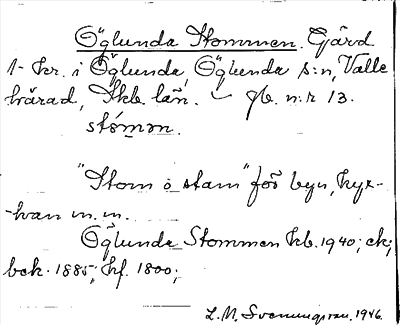 Öglunda Stommen. Gård
1 kr. i Öglunda, Öglunda s:n, Valle
härad, Skb. län. jb. n:r 13.
stómən.
"Stom o stam" för byn, kyr-
kan m. m.
Öglunda Stommen kb. 1940; ek;
bek. 1885; hf. 1800;
L. M. Svenungsson. 1946.